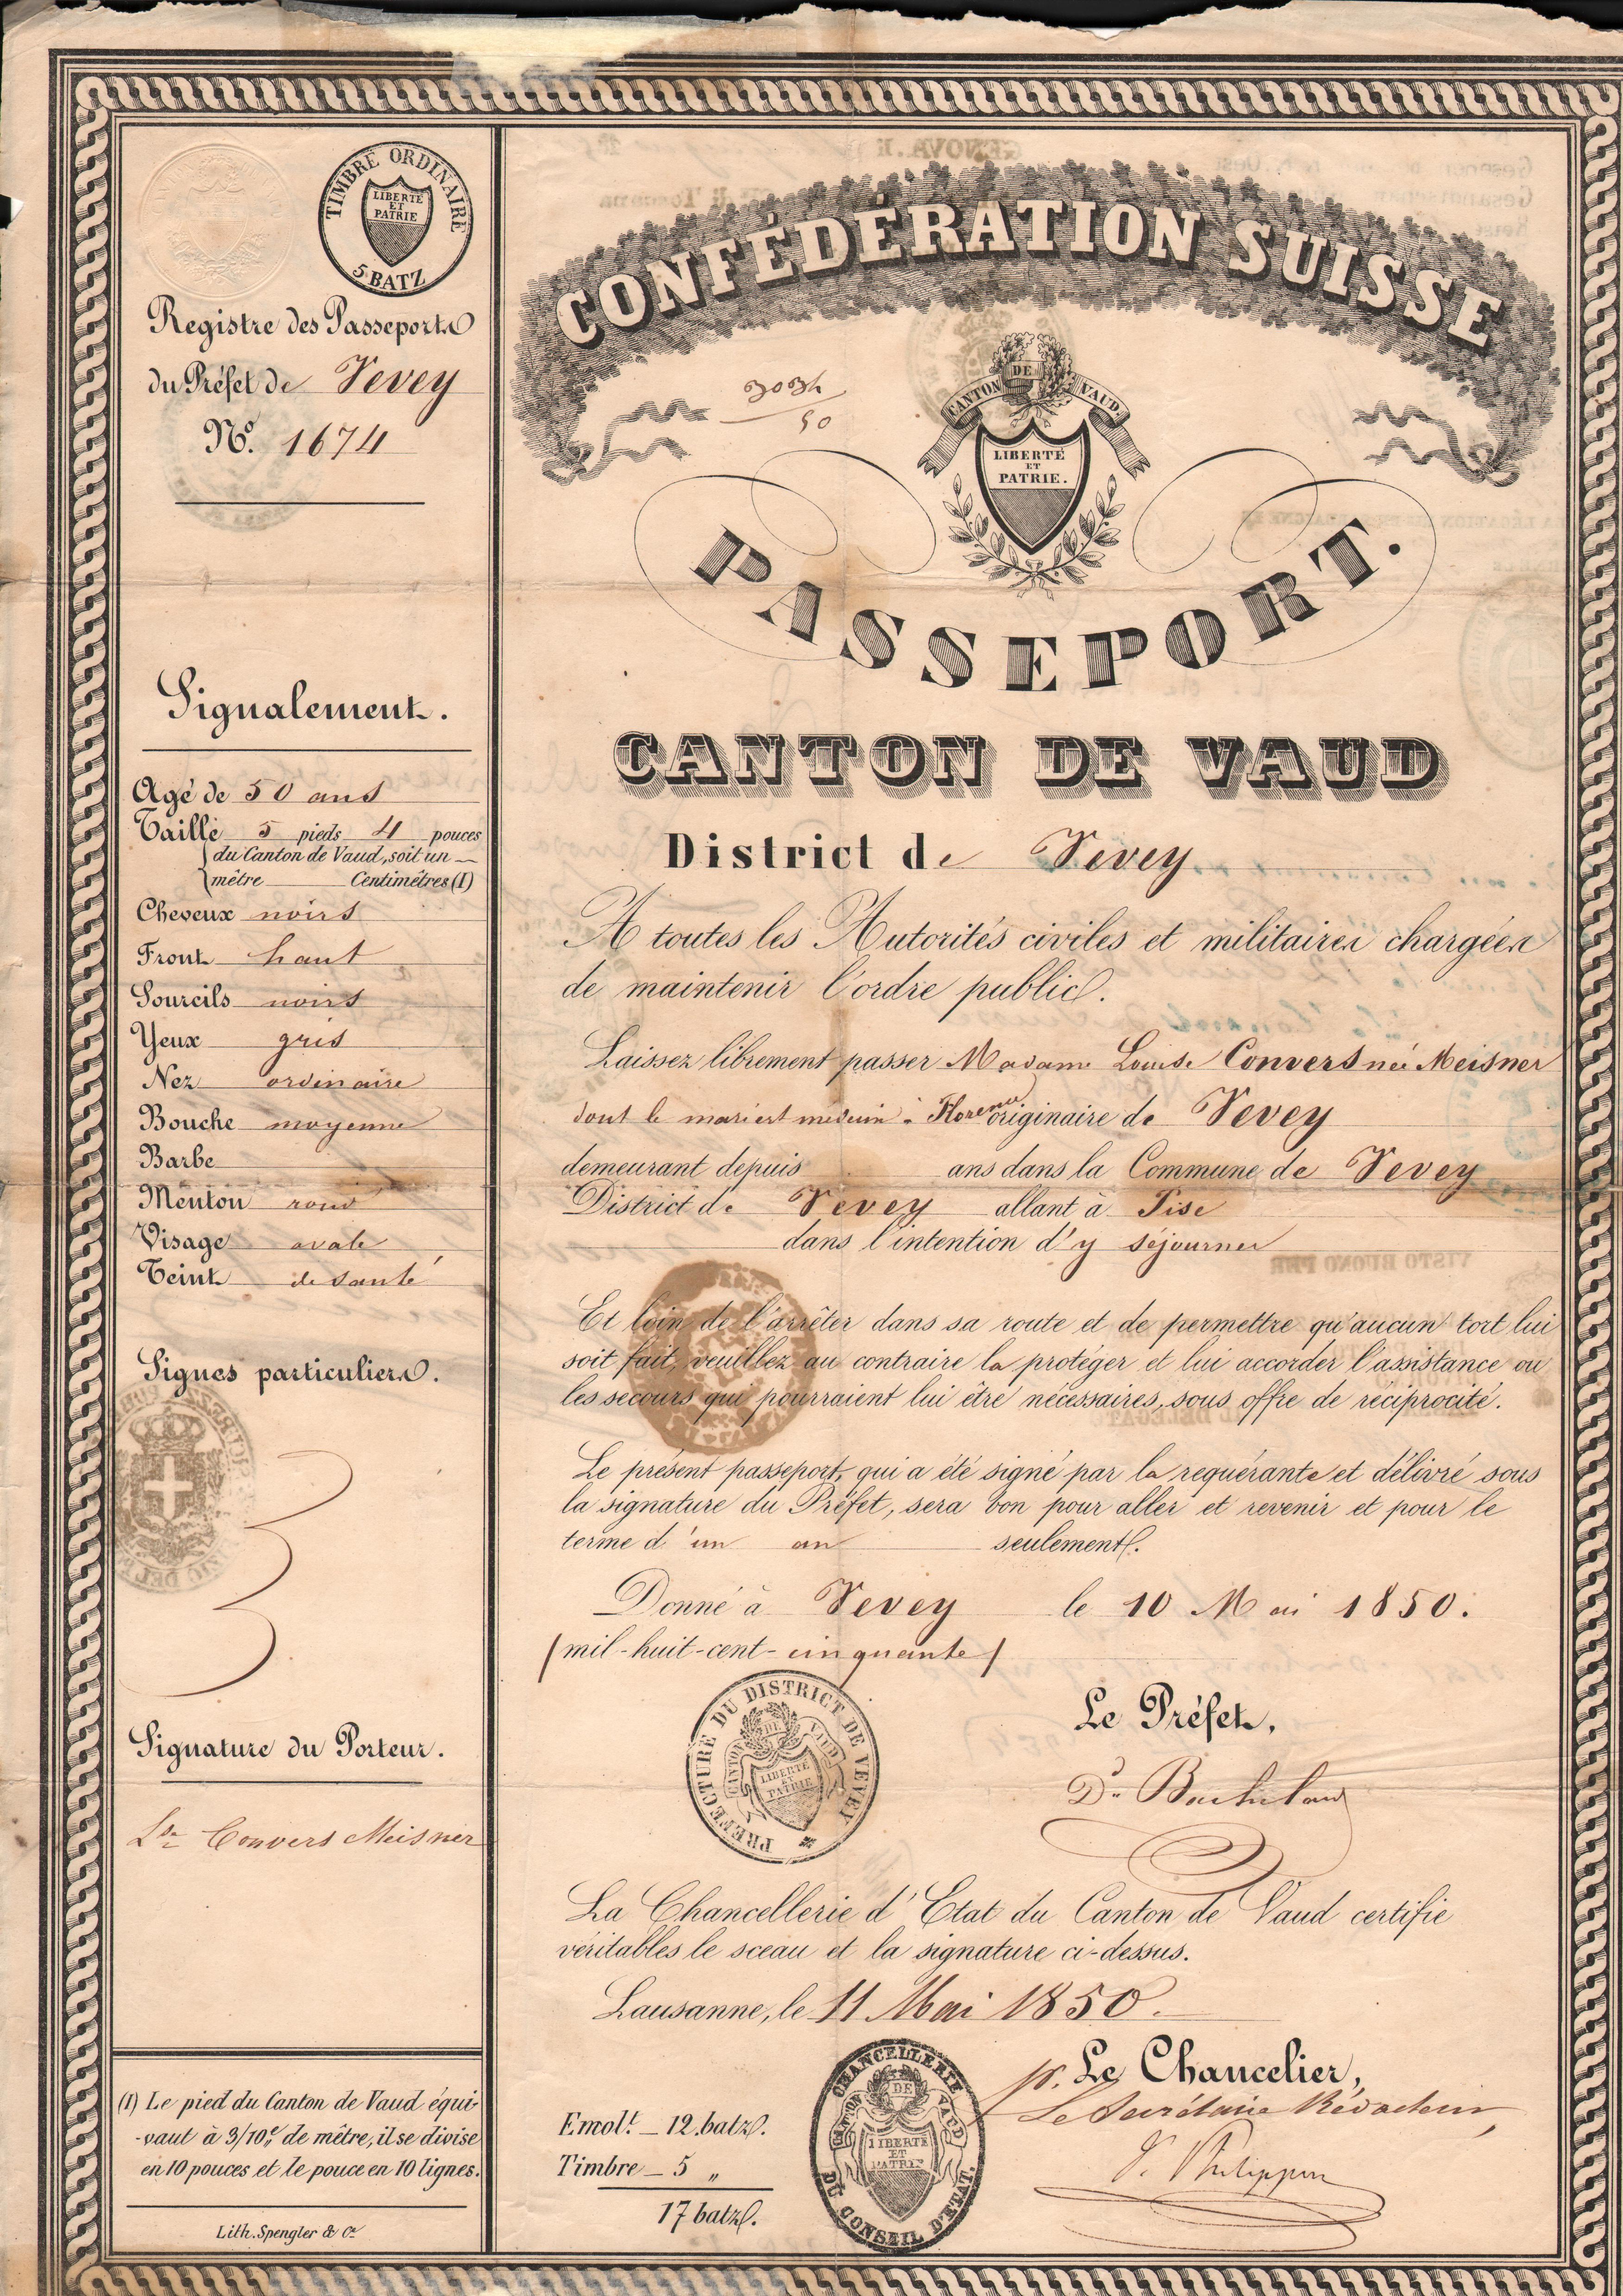 TIMBRE ORDINAIRE
LIBERTÉ
ET
PATRIE
5 BATZ
Registre des Passeports
du Préfet de Vevey
N.º 1674
Signalement.
Agé de 50 ans
Taille 5 pieds 4 pouces
du Canton de Vaud, soit un
mètre Centimètres (1)
Cheveux noirs
Front haut
Sourcils noirs
Yeux gris
Nez ordinaire
Bouche moyenne
Barbe
Menton rond
Visage ovale
Teint de santé
Signes particuliers.
Signature du Porteur.
Lse Convers Meisner
(1) Le pied du Canton de Vaud équi-
-vaut à 3/10.e de mètre, il se divise
en 10 pouces et le pouce en 10 lignes.
Lith. Spengler & Ce
CONFÉDÉRATION SUISSE
50
CANTON DE VAUD.
LIBERTÉ
ET
PATRIE.
PASSEPORT.
CANTON DE VAUD
District de Vevey
A toutes les Autorités civiles et militaires chargées
de maintenir l'ordre public.
Laissez librement passer Madame Louise Convers née Meisner
dont le mari est médecin à Florence originaire de Vevey
demeurant depuis ans dans la Commune de Vevey
District de Vevey allant à Pise
dans l'intention d'y séjourner
Et loin de l'arrêter dans sa route et de permettre qu'aucun tort lui
soit fait, veuillez au contraire la protéger et lui accorder l'assistance ou
les secours qui pourraient lui être nécessaires, sous offre de réciprocité.
Le présent passeport, qui a été signé par la requérante et délivré sous
la signature du Préfet, sera bon pour aller et revenir et pour le
terme d'un an seulement.
Donné à Vevey le 10 Mai 1850.
(mil-huit-cent-cinquante)
PREFECTURE DU DISTRICT DE VEVEY
CANTON DE VAUD
LIBERTÉ
ET
PATRIE
Le Préfet,
La Chancellerie d'Etat du Canton de Vaud certifie
véritables le sceau et la signature ci-dessus.
Lausanne, le 11 Mai 1850.
p. Le Chancelier,
Le Secrétaire Rédacteur,
Emol.t _ 12. batz.
Timbre _ 5 "
17 batz.
CHANCELLERIE DU CONSEIL D'ETAT.
CANTON DE VAUD
LIBERTÉ
ET
PATRIE